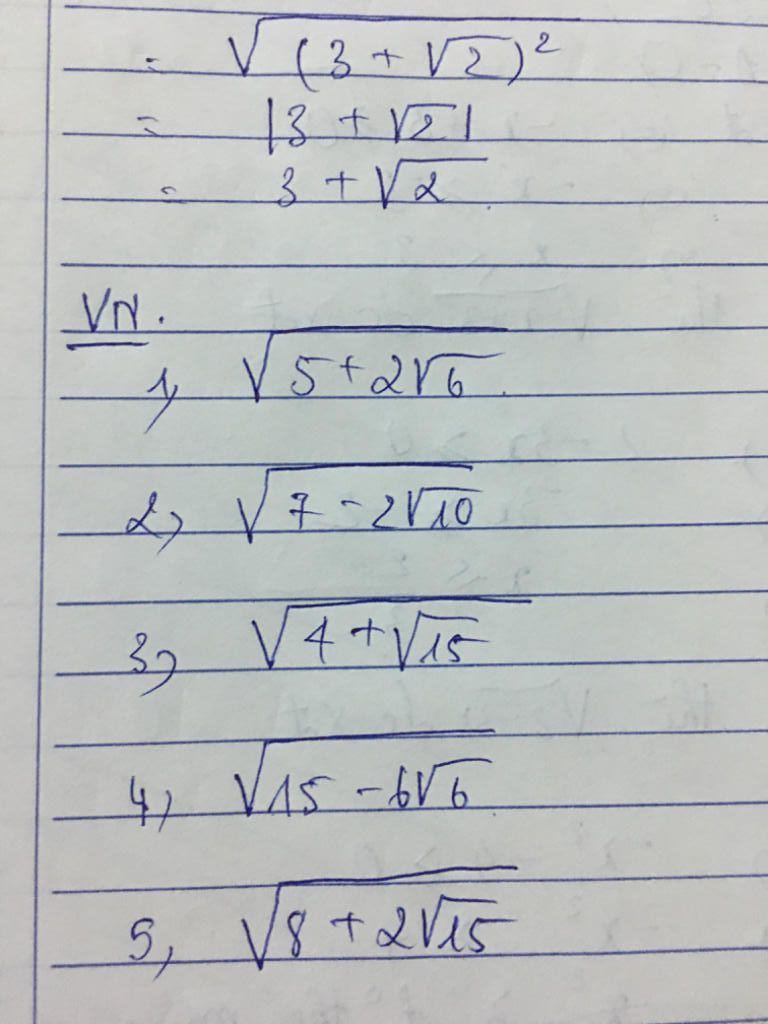 = √(3 + √2)²
= |3 + √2|
= 3 + √2
VN.
1, √5 + 2√6
2, √7 - 2√10
3, √4 + √15
4, √15 - 6√6
5, √8 + 2√15